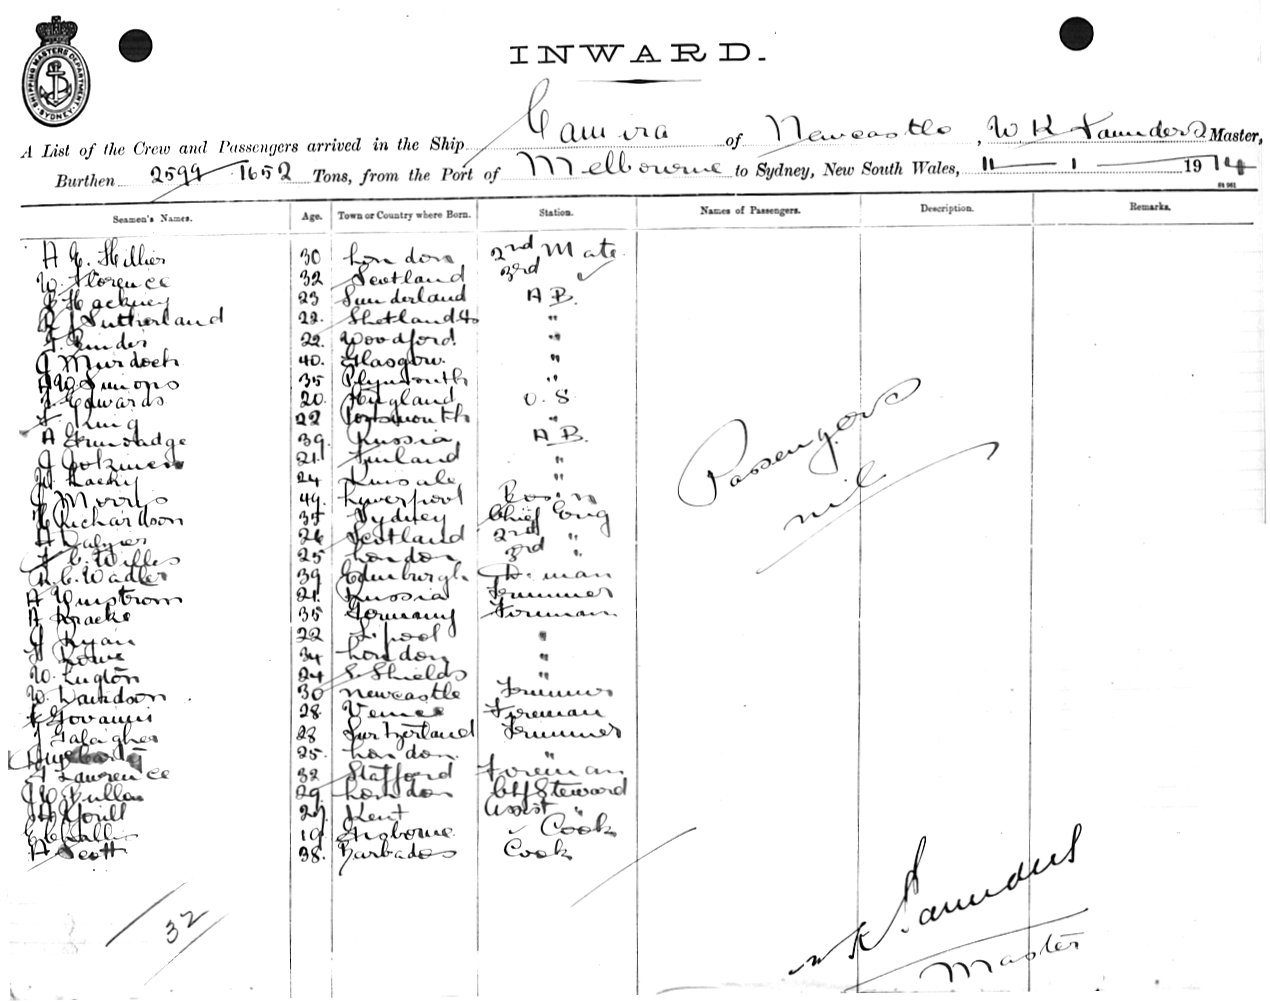 SHIPPING MASTERS DEPARTMENT SYDNEY
INWARD.
A List of the Crew and Passengers arrived in the Ship Camira of Newcastle, W K Saunders Master,
Burthen 2599 1652 Tons, from the Port of Melbourne to Sydney, New South Wales, 11 1 1914
Seamen's Names. Age. Town or Country where Born. Station. Names of Passengers. Description. Remarks.
A E. Hillier 30 London 2nd Mate
W. Florence 32 Scotland 3rd
Hackney 23 Sunderland A B.
Sutherland 22. Shetland Is "
22. Woodford. "
J Murdoch 40. Glasgow. "
A W Simons 35 Plymouth "
Edwards 20. England O. S
King 22 Portsmouth "
A 39. Russia A B.
J 21. Finland "
24 Kinsale "
J Morris 49. Liverpool Bosun
Richardson 35 Sydney Chief Eng
A 26 Scotland 2nd "
C. Willes 25 London 3rd "
C. Wadler 39 Edinburgh D. man
A Winstrom 21. Russia Trimmer
A Bracke 35 Germany Fireman
J Ryan 22 L'pool "
Rowe 34 London "
W. Lugton 24 S. Shields "
W. Davidson 30 Newcastle Trimmer
Govannis 28. Venice Fireman
28 Switzerland Trimmer
25. London. "
Lawrence 32 Stafford Fireman
J W Pullen 29 London Chf Steward
29. Kent Assist "
E Challis 19 Gisborne " Cook
A Scott 38. Barbados Cook
Passengers
nil
32
W K Saunders
Master